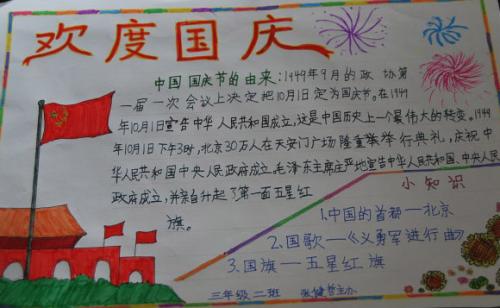 欢度国庆
中国国庆节的由来:1949年9月的政协第
一届一次会议上决定把10月1日定为国庆节。在1949
年10月1日宣告中华人民共和国成立,这是中国历史上一个最伟大的转变。1949
年10月1日下午3时,北京30万人在天安门广场隆重举行典礼,庆祝中
华人民共和国中央人民政府成立,毛泽东主席庄严地宣告中华人民共和国、中央人民
政府成立,并亲自升起了第一面五星红
旗。
小知识
1.中国的首都—北京
2.国歌—《义勇军进行曲》
3.国旗—五星红旗
三年级二班 张健哲主办